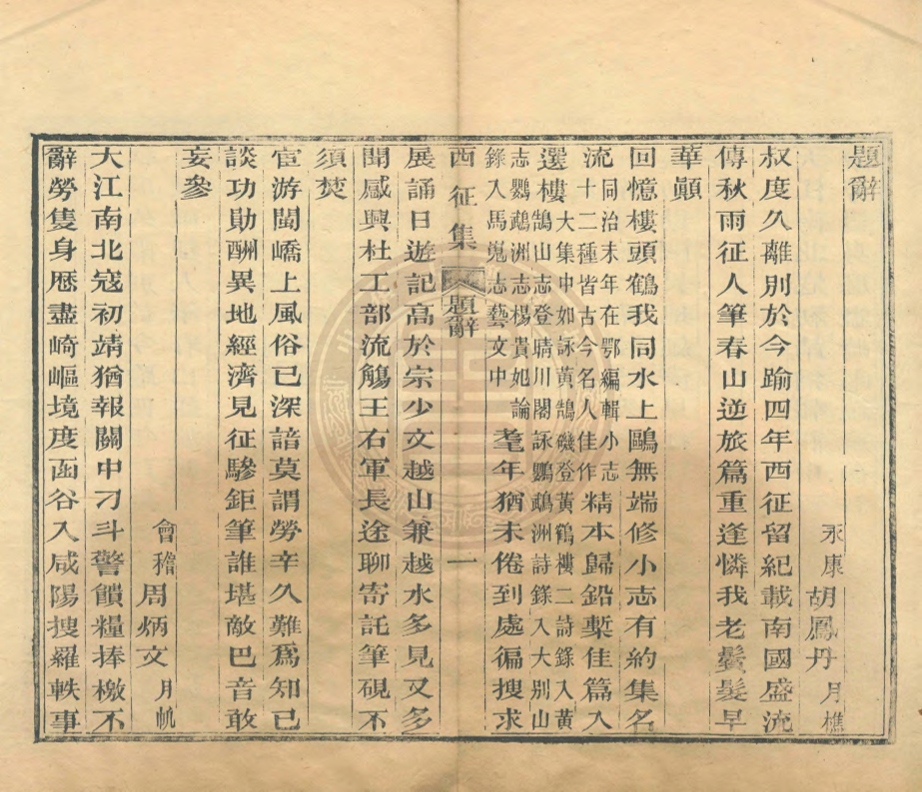 題辭
永康胡鳳丹月樵
叔度久離別於今踰四年西征留紀載南國盛流
傳秋雨征人筆春山逆旅篇重逢憐我老鬢髮早
華顚
回憶樓頭鶴我同水上鷗無端修小志有約集名
流
同治末年在鄂編輯小志
十二種皆古今名人佳作
精本歸鉛槧佳篇入
選樓
大集中如詠黃鵠磯登黃鶴樓二詩錄入黃
鵠山志登晴川閣詠鸚鵡洲詩錄入大別山
志鸚鵡洲志楊貴妃論
錄入馬嵬志藝文中
耄年猶未倦到處徧搜求
西征集 題辭 一
展誦日遊記高於宗少文越山兼越水多見又多
聞感興杜工部流觴王右軍長途聊寄託筆硯不
須焚
宦游閩嶠上風俗已深諳莫謂勞辛久難爲知已
談功勛酬異地經濟見征驂鉅筆誰堪敵巴音敢
妄參
會稽周炳文月帆
大江南北寇初靖猶報關中刁斗警饋糧捧檄不
辭勞隻身歷盡崎嶇境度函谷入咸陽搜羅軼事